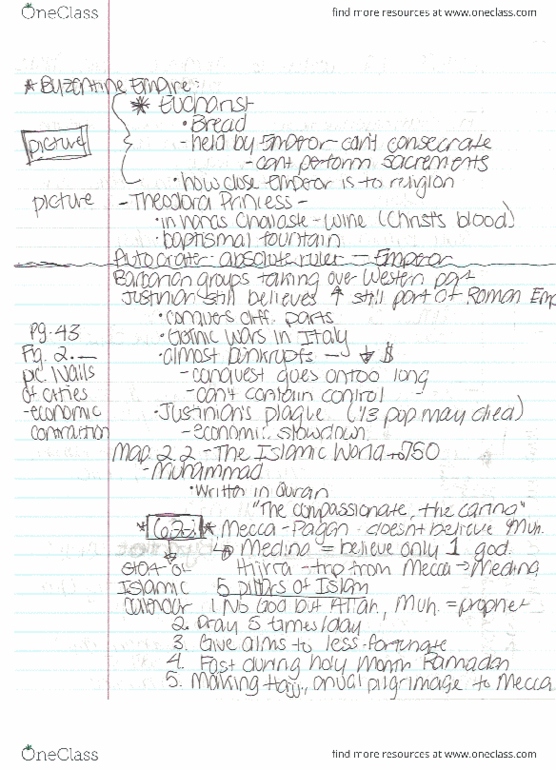 OneClass
find more resources at www.oneclass.com
* Byzentine Empire:
* Eucharist
• Bread
picture
- held by Emperor - can't consecrate
- cant perform sacrements
• how close Emperor is to religion
picture
- Theodora Princess -
• in hands Chalaste - wine (Christ's blood)
• baptismal fountain
Autocrate - absolute ruler = Emperor
Barbarian groups taking over Western part
Justinian still believes ↑ still part of Roman Emp
• conquers diff. parts
Pg. 43
• Gothic wars in Italy
Fg. 2. —
• almost bankrupts → ↓ $
pic walls
- conquest goes on too long
of cities
- can't contain control
- economic
• Justinian's plaque (1/3 pop may died)
contraction
- economic slowdown
Map 2.2 - The Islamic World to 750
- Muhammad
• Written in Quran
"The compassionate, the caring"
* 622 * Mecca - Pagan · doesnt believe Muh.
↳ Medina = believe only 1 god.
start of
Hijira - trip from Mecca → Medina
Islamic
5 pillars of Islam
calendar
1. No God but Allah, Muh. = prophet
2. Pray 5 times/day
3. Give alms to less-fortunate
4. Fast during holy month Ramadan
5. Making hajj, anual pilgrimage to Mecca
OneClass
find more resources at www.oneclass.com